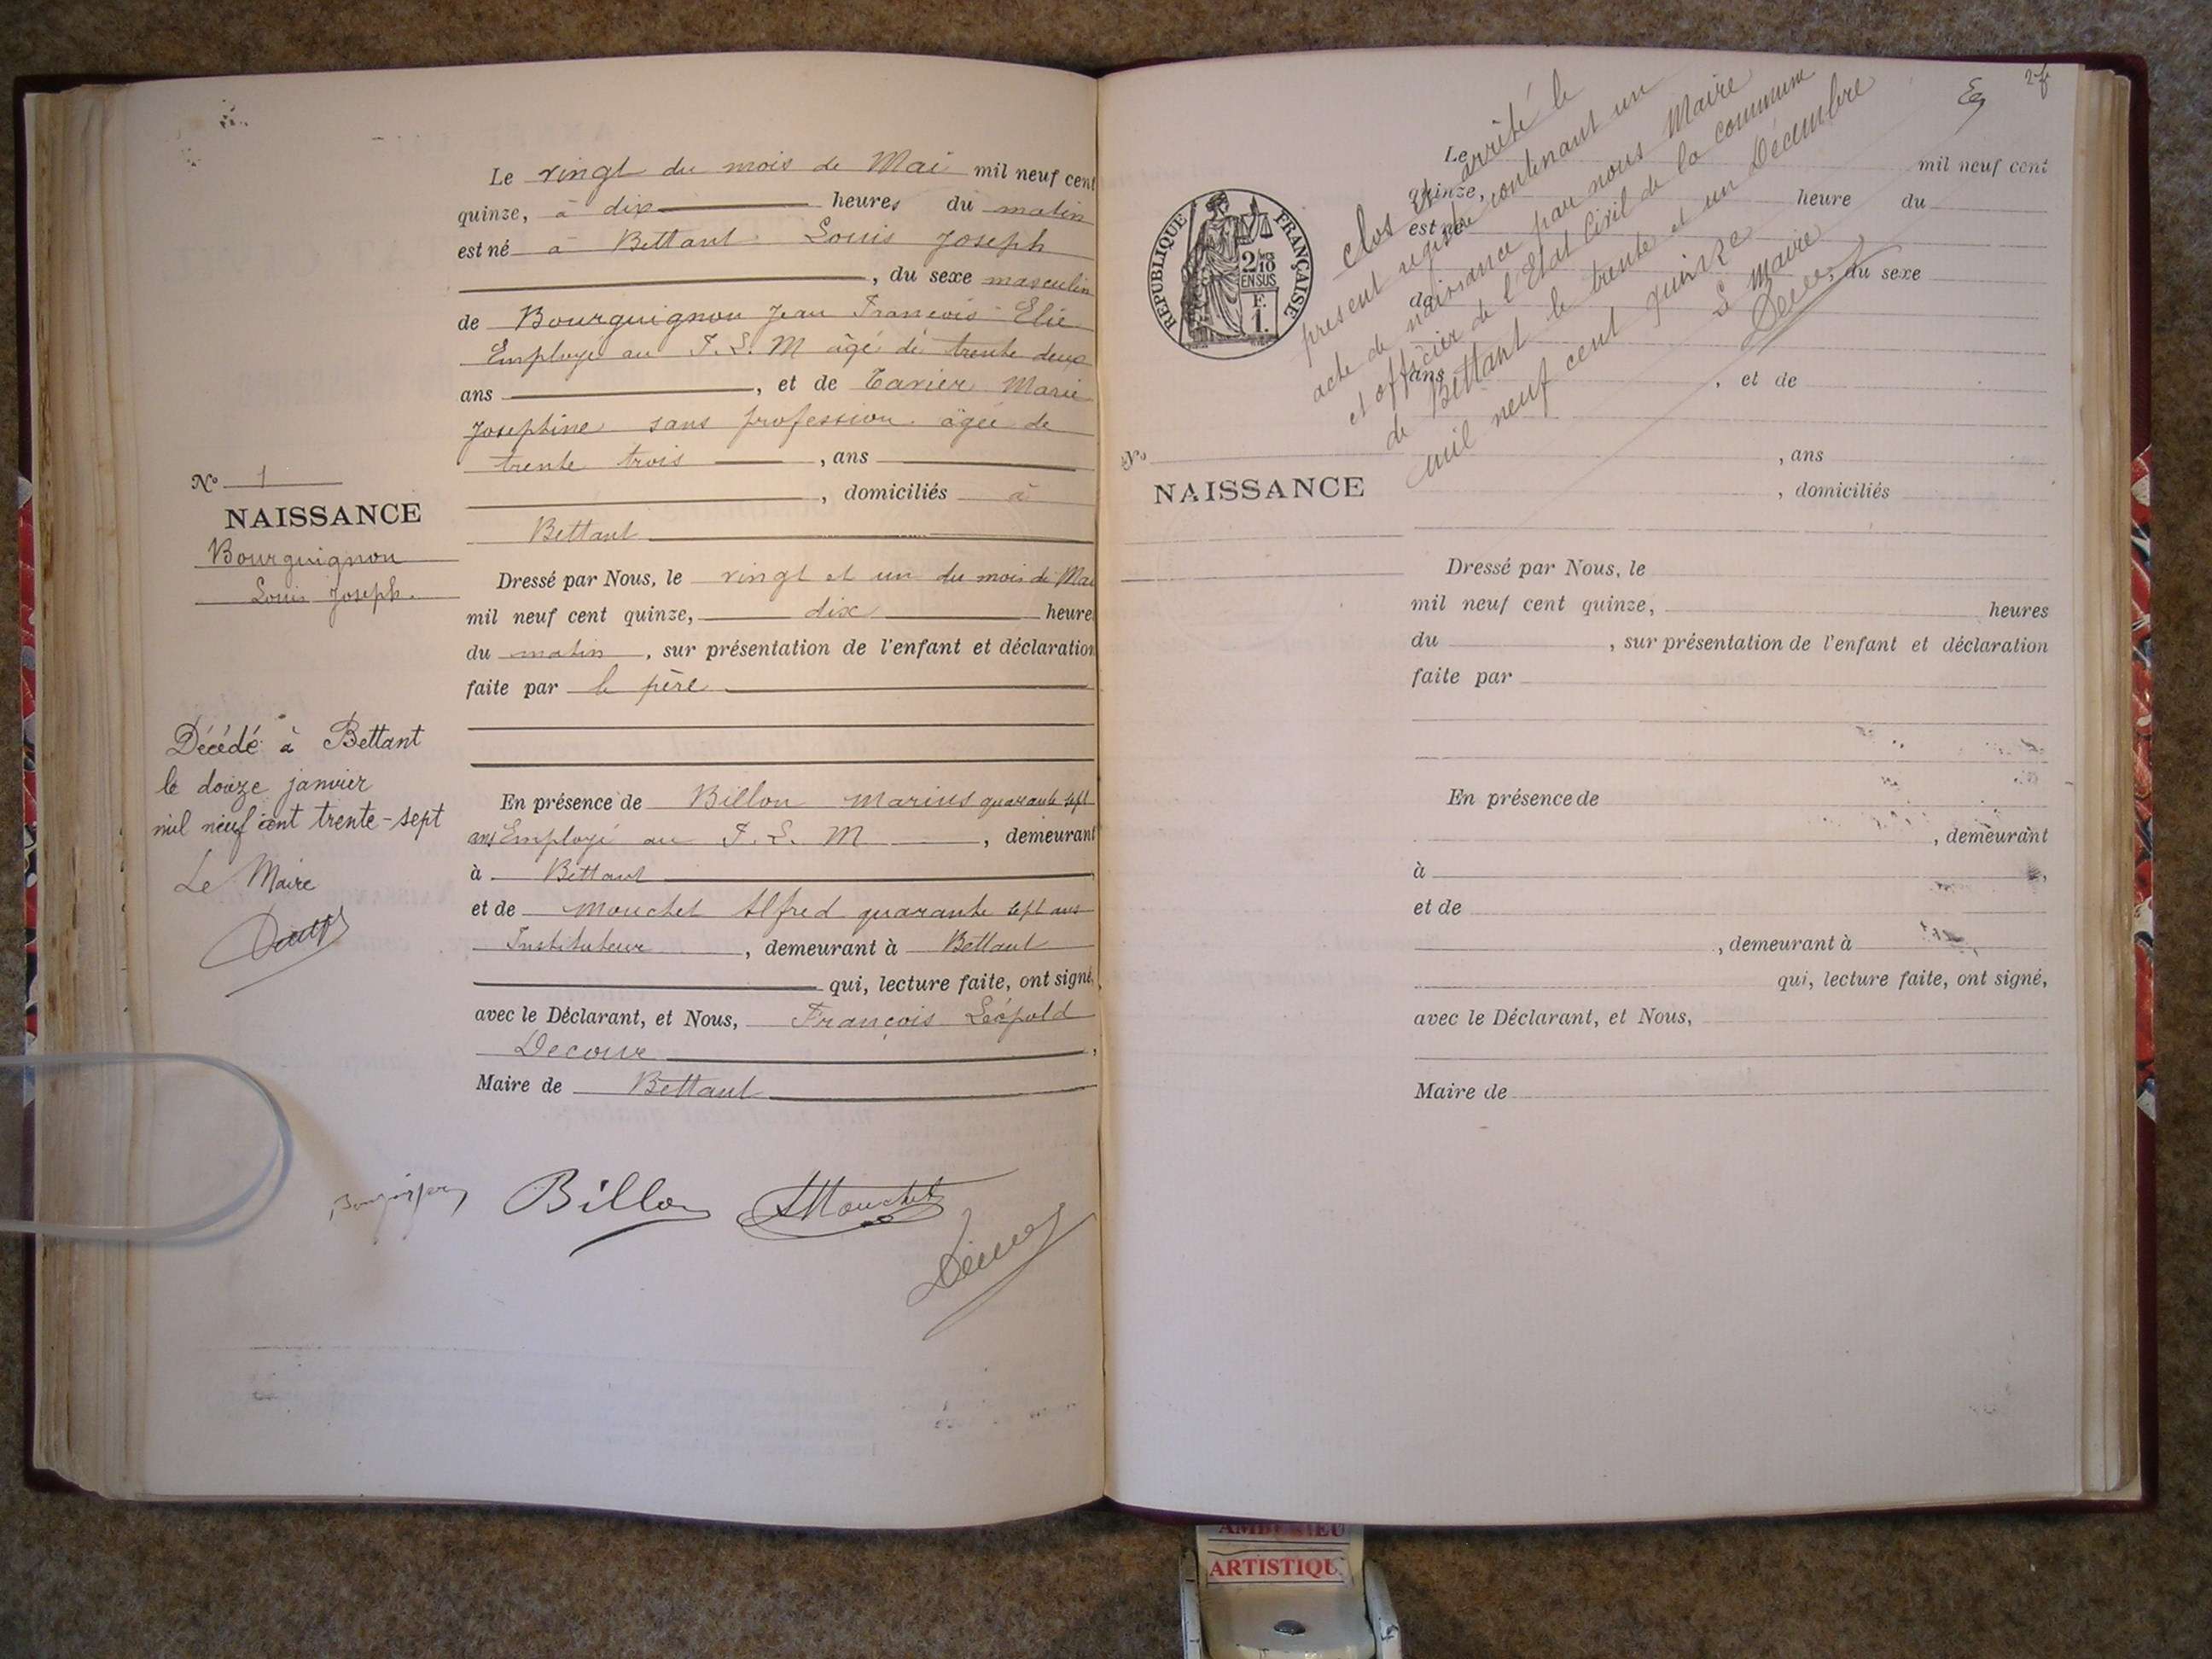 Le vingt du mois de Mai mil neuf cent
quinze, à dix heures du matin
est né à Bettant Louis Joseph
, du sexe masculin
de Bourguignon Jean François Elie
Employé au P. L. M âgé de trente deux
ans , et de Tavier Marie
Joséphine sans profession âgée de
trente trois , ans
, domiciliés à
Bettant
N° 1
NAISSANCE
Bourguignon
Louis Joseph.
Dressé par Nous, le vingt et un du mois de Mai
mil neuf cent quinze, dix heures
du matin , sur présentation de l'enfant et déclaration
faite par le père
Décédé à Bettant
le douze janvier
mil neuf cent trente-sept
Le Maire
En présence de Billon Marius quarante sept
ans Employé au P. L. M , demeurant
à Bettant
et de Mouchet Alfred quarante sept ans
Instituteur , demeurant à Bettant
qui, lecture faite, ont signé,
avec le Déclarant, et Nous, François Léopold
Decour ,
Maire de Bettant
Billon
AMouchet
2
REPUBLIQUE FRANÇAISE
2/10 EN SUS
F. 1.
clos et arrêté le
présent registre contenant un
acte de naissance par nous Maire
et officier de l'Etat Civil de la commune
de Bettant le trente et un Décembre
mil neuf cent quinze
Le Maire
Le mil neuf cent
quinze, heure du
est né
, du sexe
de
ans , et de
, ans
, domiciliés
N°
NAISSANCE
Dressé par Nous, le
mil neuf cent quinze, heures
du , sur présentation de l'enfant et déclaration
faite par
En présence de
, demeurant
à ,
et de
, demeurant à
qui, lecture faite, ont signé,
avec le Déclarant, et Nous,
Maire de
AMBERIEU
ARTISTIQU